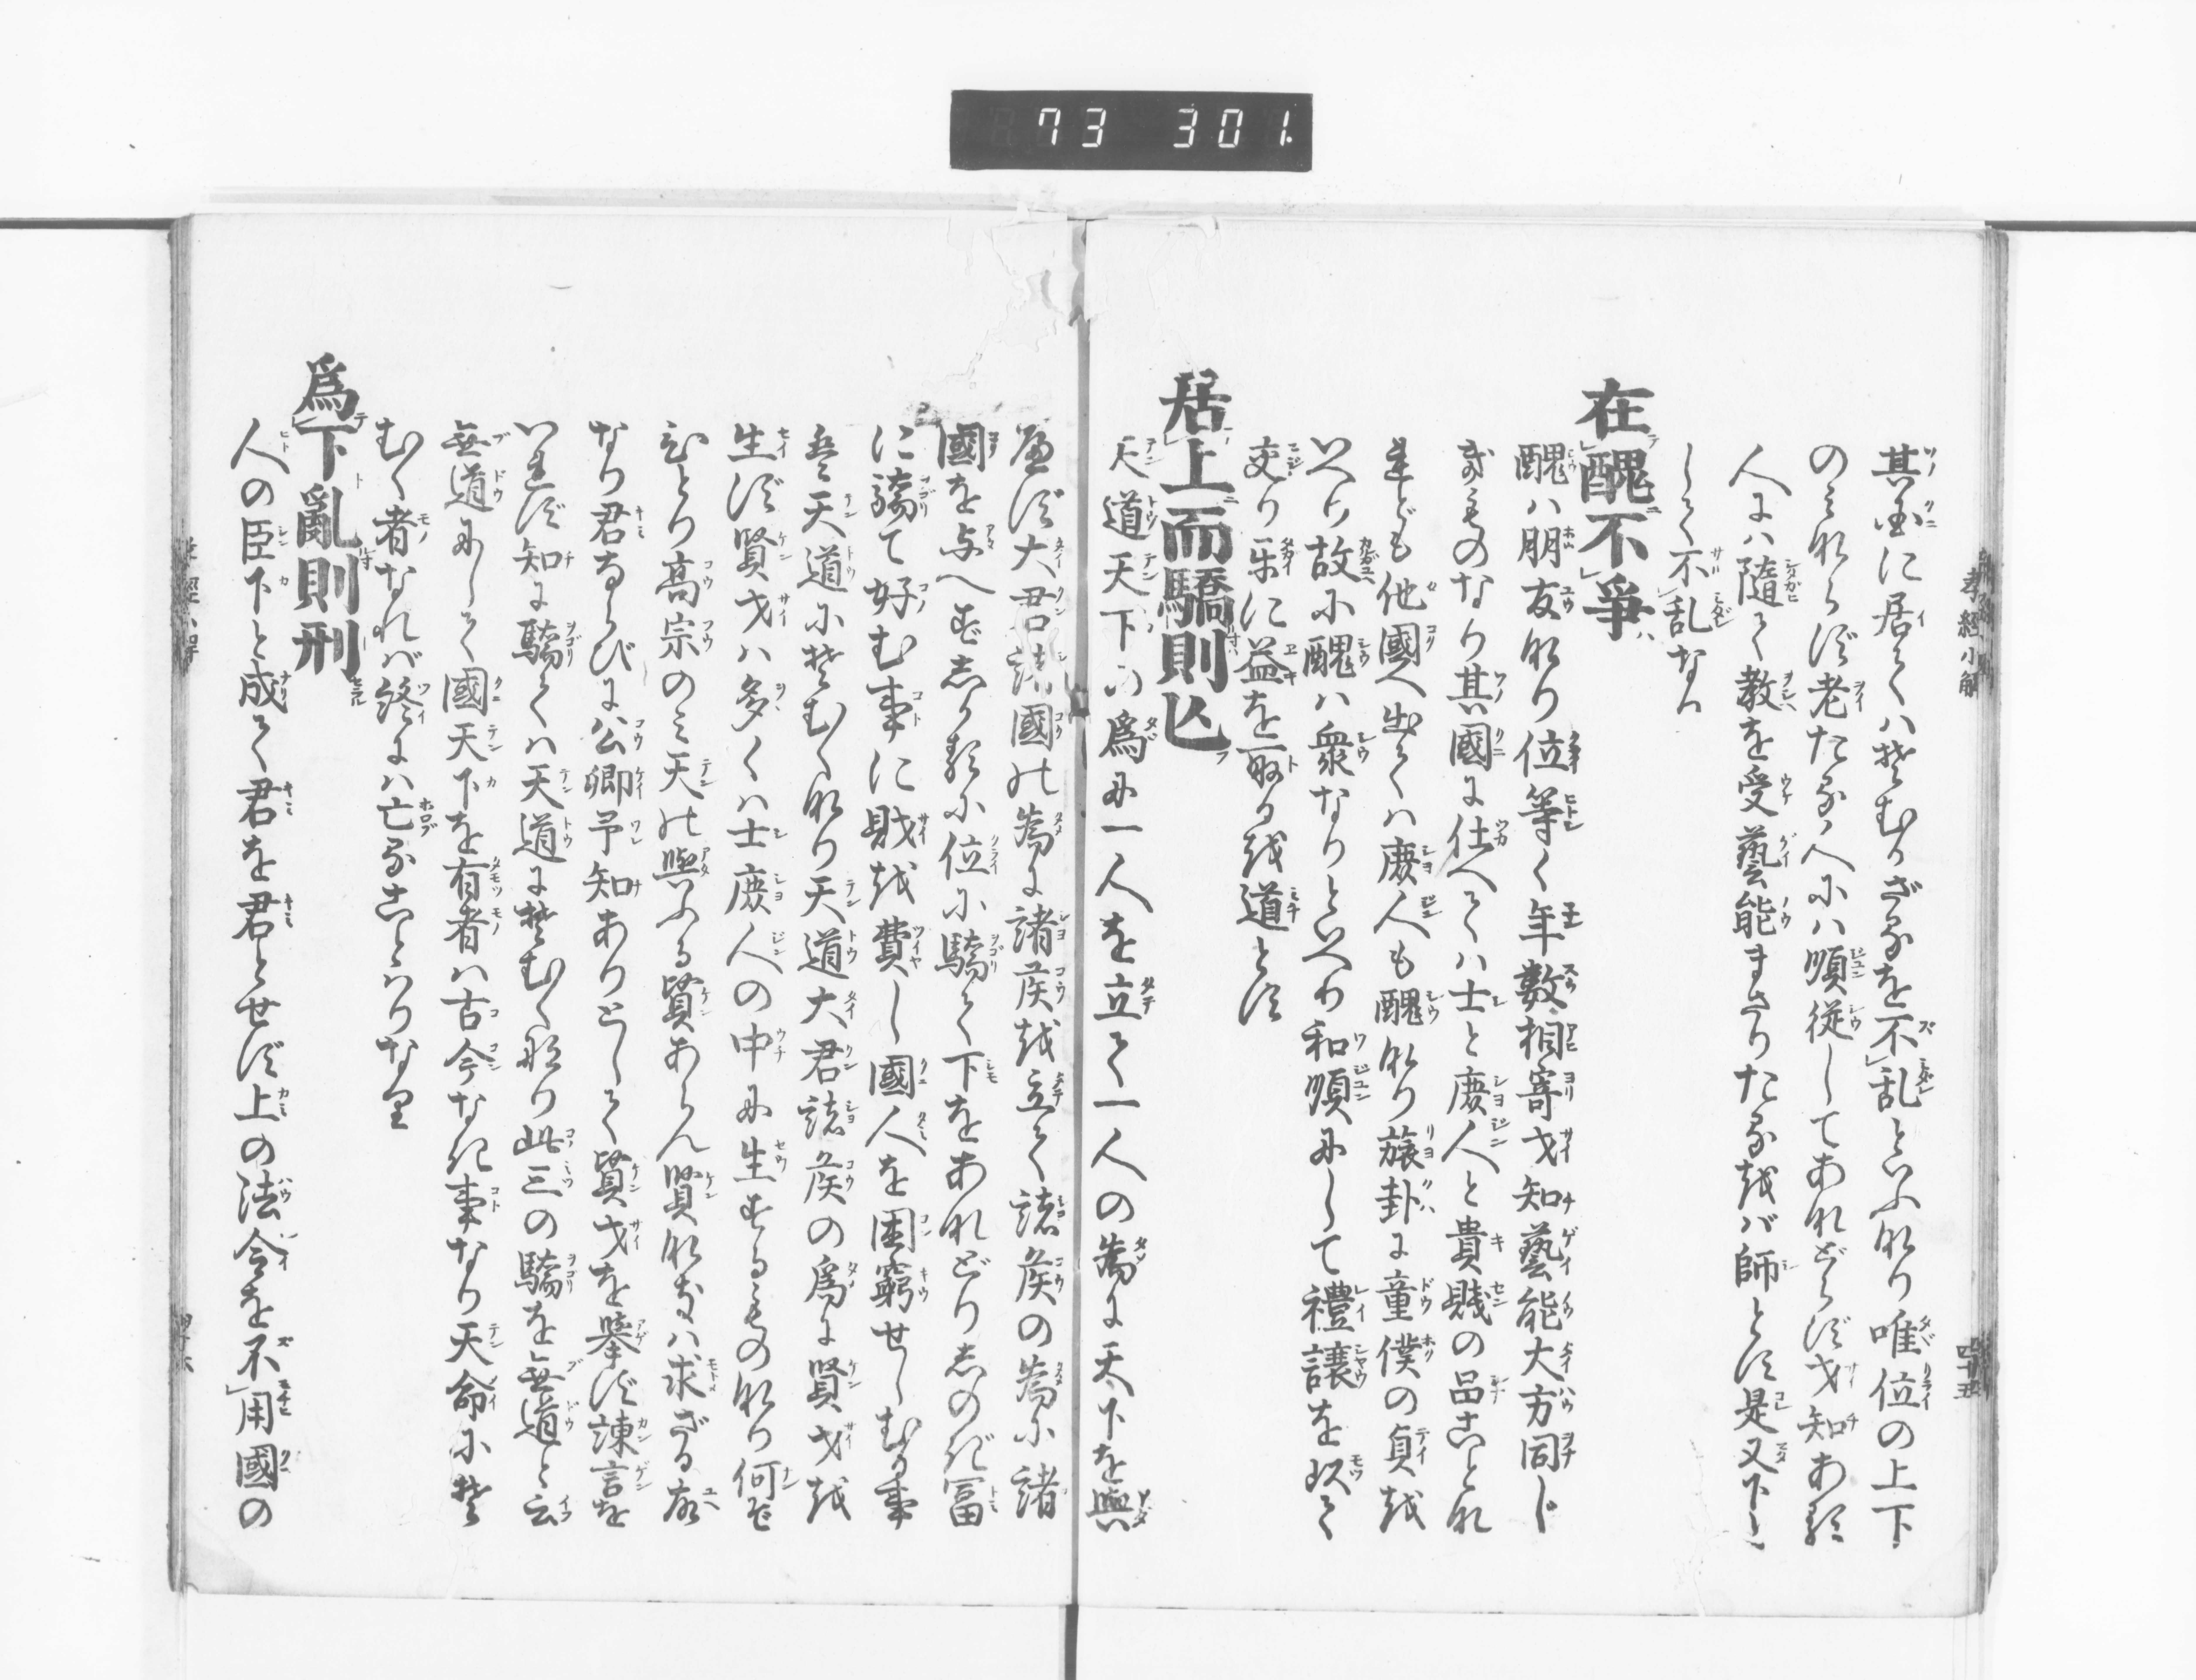 73 301.
孝經小解
四十五
其国に居てハそむかざるを不乱といふなり唯位の上下
のミならず老たる人にハ順従してあなどらず才知ある
人にハ随て教を受藝能まさりたるをバ師とす是又下と
して不乱なり
在醜不爭
醜ハ朋友なり位等く年數相寄才知藝能大方同じ
きものなり其國に仕へてハ士と庶人と貴賎の品ことな
れども他國へ出てハ庶人も醜なり旅卦に童僕の貞を
いへり故に醜ハ衆なりといへり和順にして禮讓を以て
交り乐に益を取るを道とす
居上而驕則亾
天道天下の爲に一人を立て一人の為に天下を與
へず大君諸國の為に諸侯を立て諸侯の為に諸
國を与へずしかるに位に驕て下をあなどりしのぎ冨
に驕て好む事に財を費し國人を困窮せしむる事
是天道にそむくなり天道大君諸侯の爲に賢才を
生ず賢才ハ多くハ士庶人の中に生ずるものなり何ぞ
ひとり高宗のミ天の與ふる賢あらん賢なきハ求ざる故
なり君ならびに公卿予知ありとして賢才を舉ず諌言を
いれず知に驕てハ天道にそむくなり此三の驕を無道と云
無道にして國天下を有者ハ古今なき事なり天命にそ
むく者なれバ終にハ亡ることハりなり
爲下亂則刑
人の臣下と成て君を君とせず上の法令を不用國の